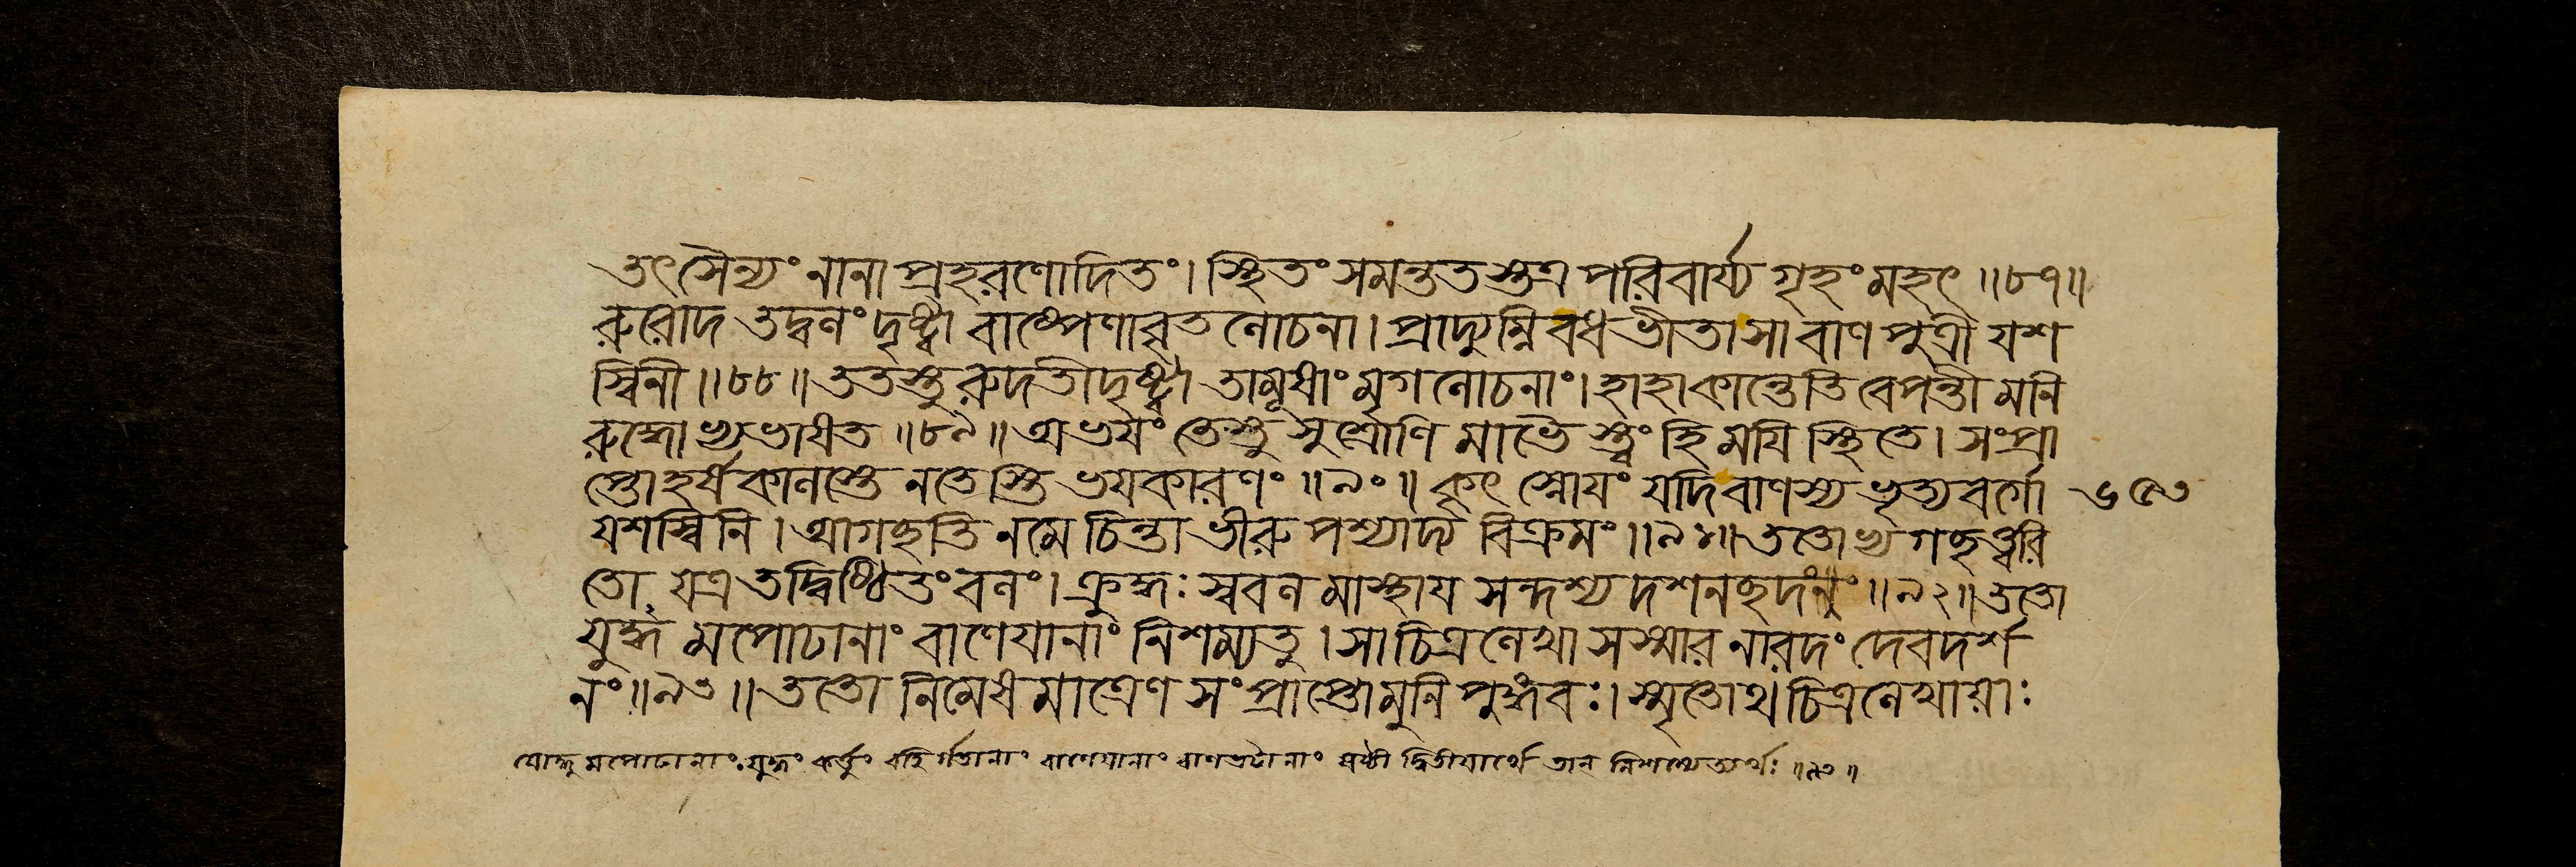 তৎ সৈন্যং নানা প্রহরণোদিতং। স্থিতং সমন্ততস্তত্র পরিবার্য্য গৃহং মহৎ॥৮৭॥
রুরোদ তদ্বলং দৃষ্ট্বা বাষ্পেণাবৃত লোচনা। প্রাদ্যুম্নিবধ ভীতা সা বাণ পুত্রী যশ
স্বিনী॥৮৮॥ ততস্তু রুদতীং দৃষ্ট্বা তামূষাং মৃগ লোচনাং। হাহা কান্তেতি বেপন্তী মনি
রুদ্ধোভ্যভাষত॥৮৯॥ অভয়ং তেস্তু সুশ্রোণি মাভৈ স্ত্বং হি ময়ি স্থিতে। সংপ্রা
প্তোহর্ষকালস্তে নতেস্তি ভয়কারণং॥৯০॥ কৃৎস্নোয়ং যদি বাণস্য ভৃত্য বর্গো
যশস্বিনি। আগচ্ছতি নমে চিন্তা ভীরু পশ্যাদ্য বিক্রমং॥৯১॥ ততোভ্য গচ্ছত্ত্বরি
তো যত্র তদ্বিষ্ঠিতং বলং। ক্রুদ্ধঃ স্ববল মাস্থায় সন্দশ্য দশনচ্ছদং॥৯২॥ ততো
যুদ্ধ মপোঢানাং বাণেয়ানাং নিশম্য তু। সা চিত্রলেখা সস্মার নারদং দেবদর্শ
নং॥৯৩॥ ততো নিমেষমাত্রেণ সংপ্রাপ্তো মুনি পুঙ্গবঃ। স্মৃতোথ চিত্রলেখায়াঃ
যোদ্ধুমপোঢানাং যুদ্ধং কর্ত্তুং বহির্গতানাং বাণেয়ানাং বাণভটানাং ষষ্ঠী দ্বিতীয়ার্থে তান্ নিশম্যেত্যর্থঃ॥৯৩॥